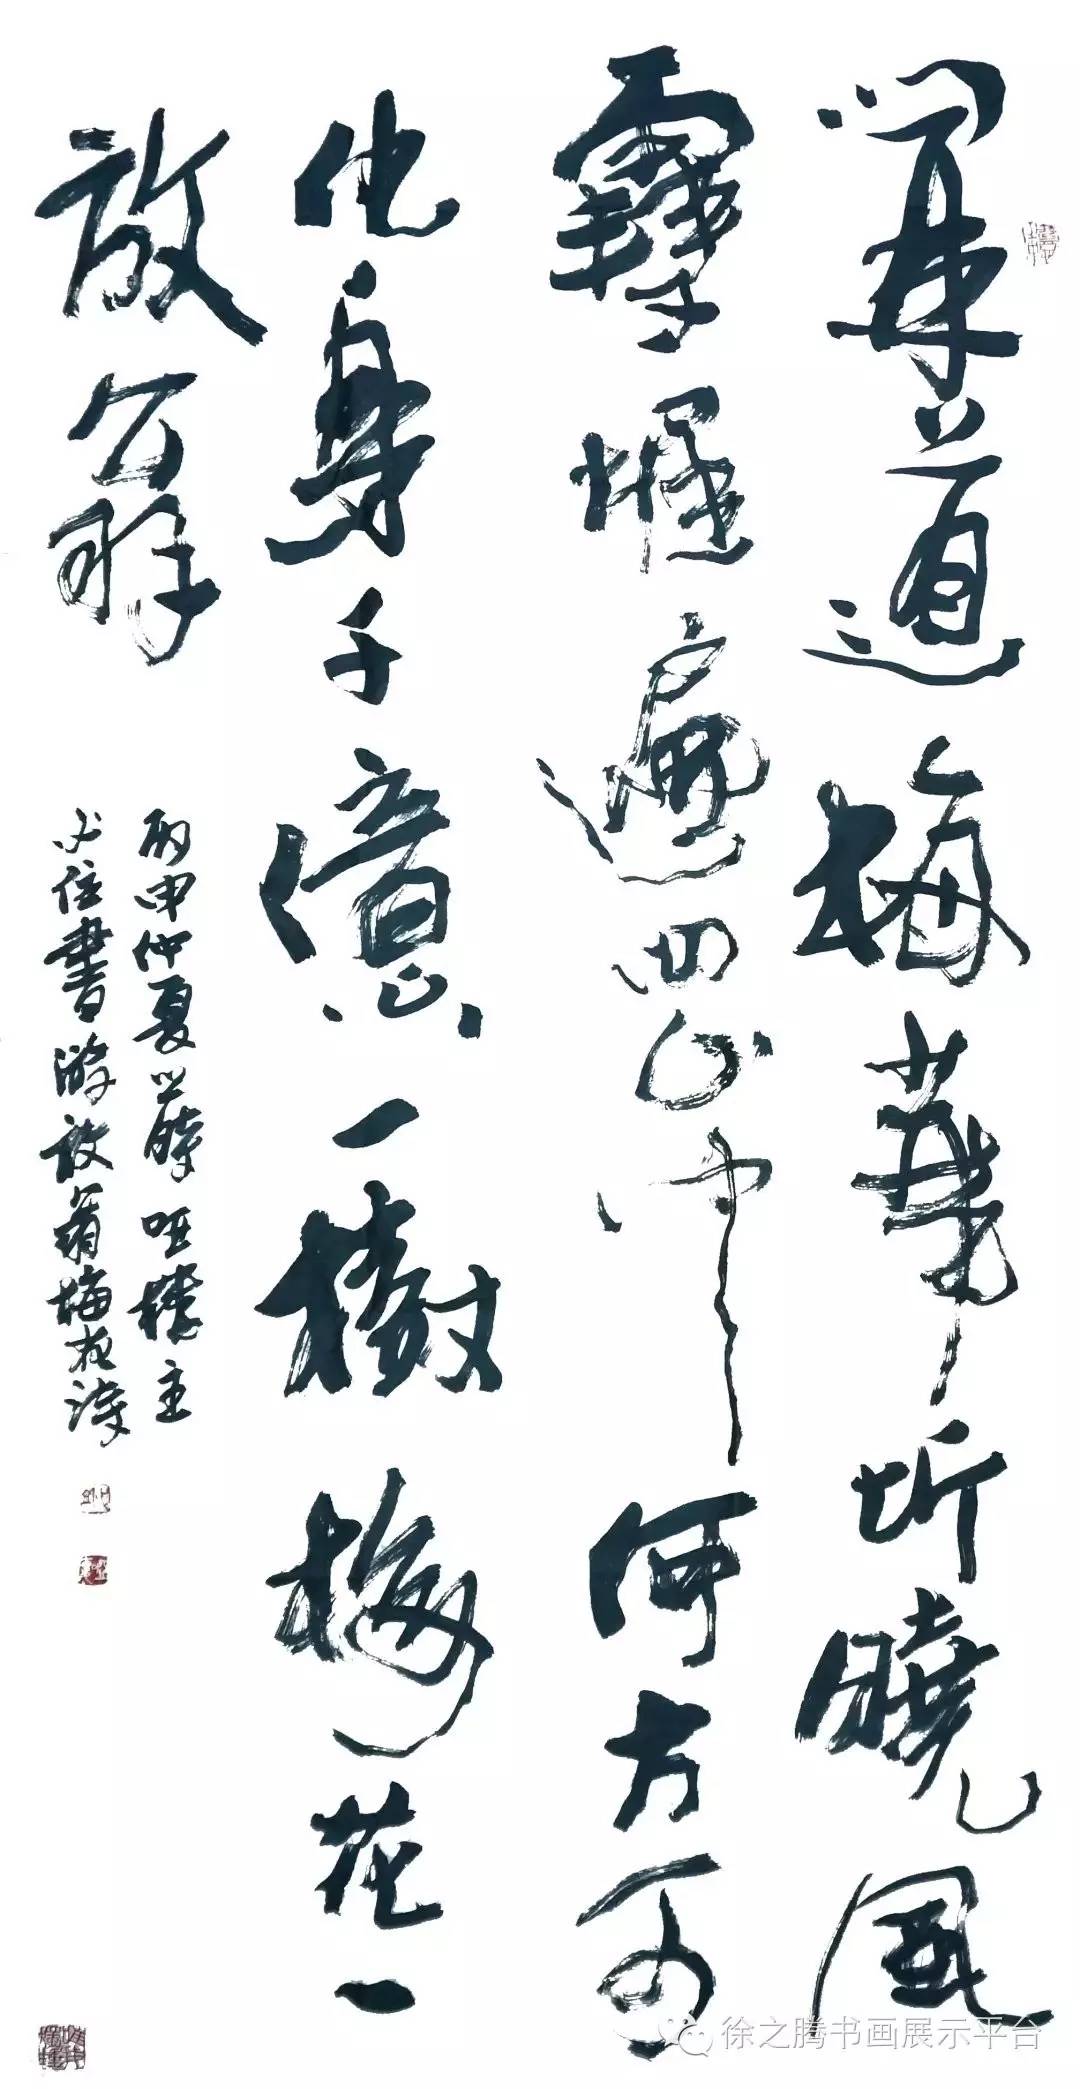 聞道梅華坼曉風
雪堆遍四山中何方可
化身千億一樹梅花一
放翁
丙申仲夏樓主
書放翁梅花詩
徐之腾书画展示平台